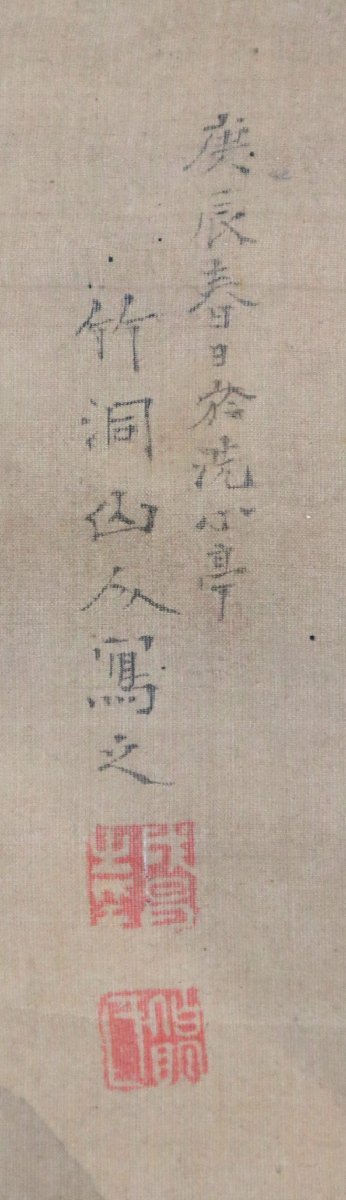 庚辰春日於洗心亭
竹洞山人寫之